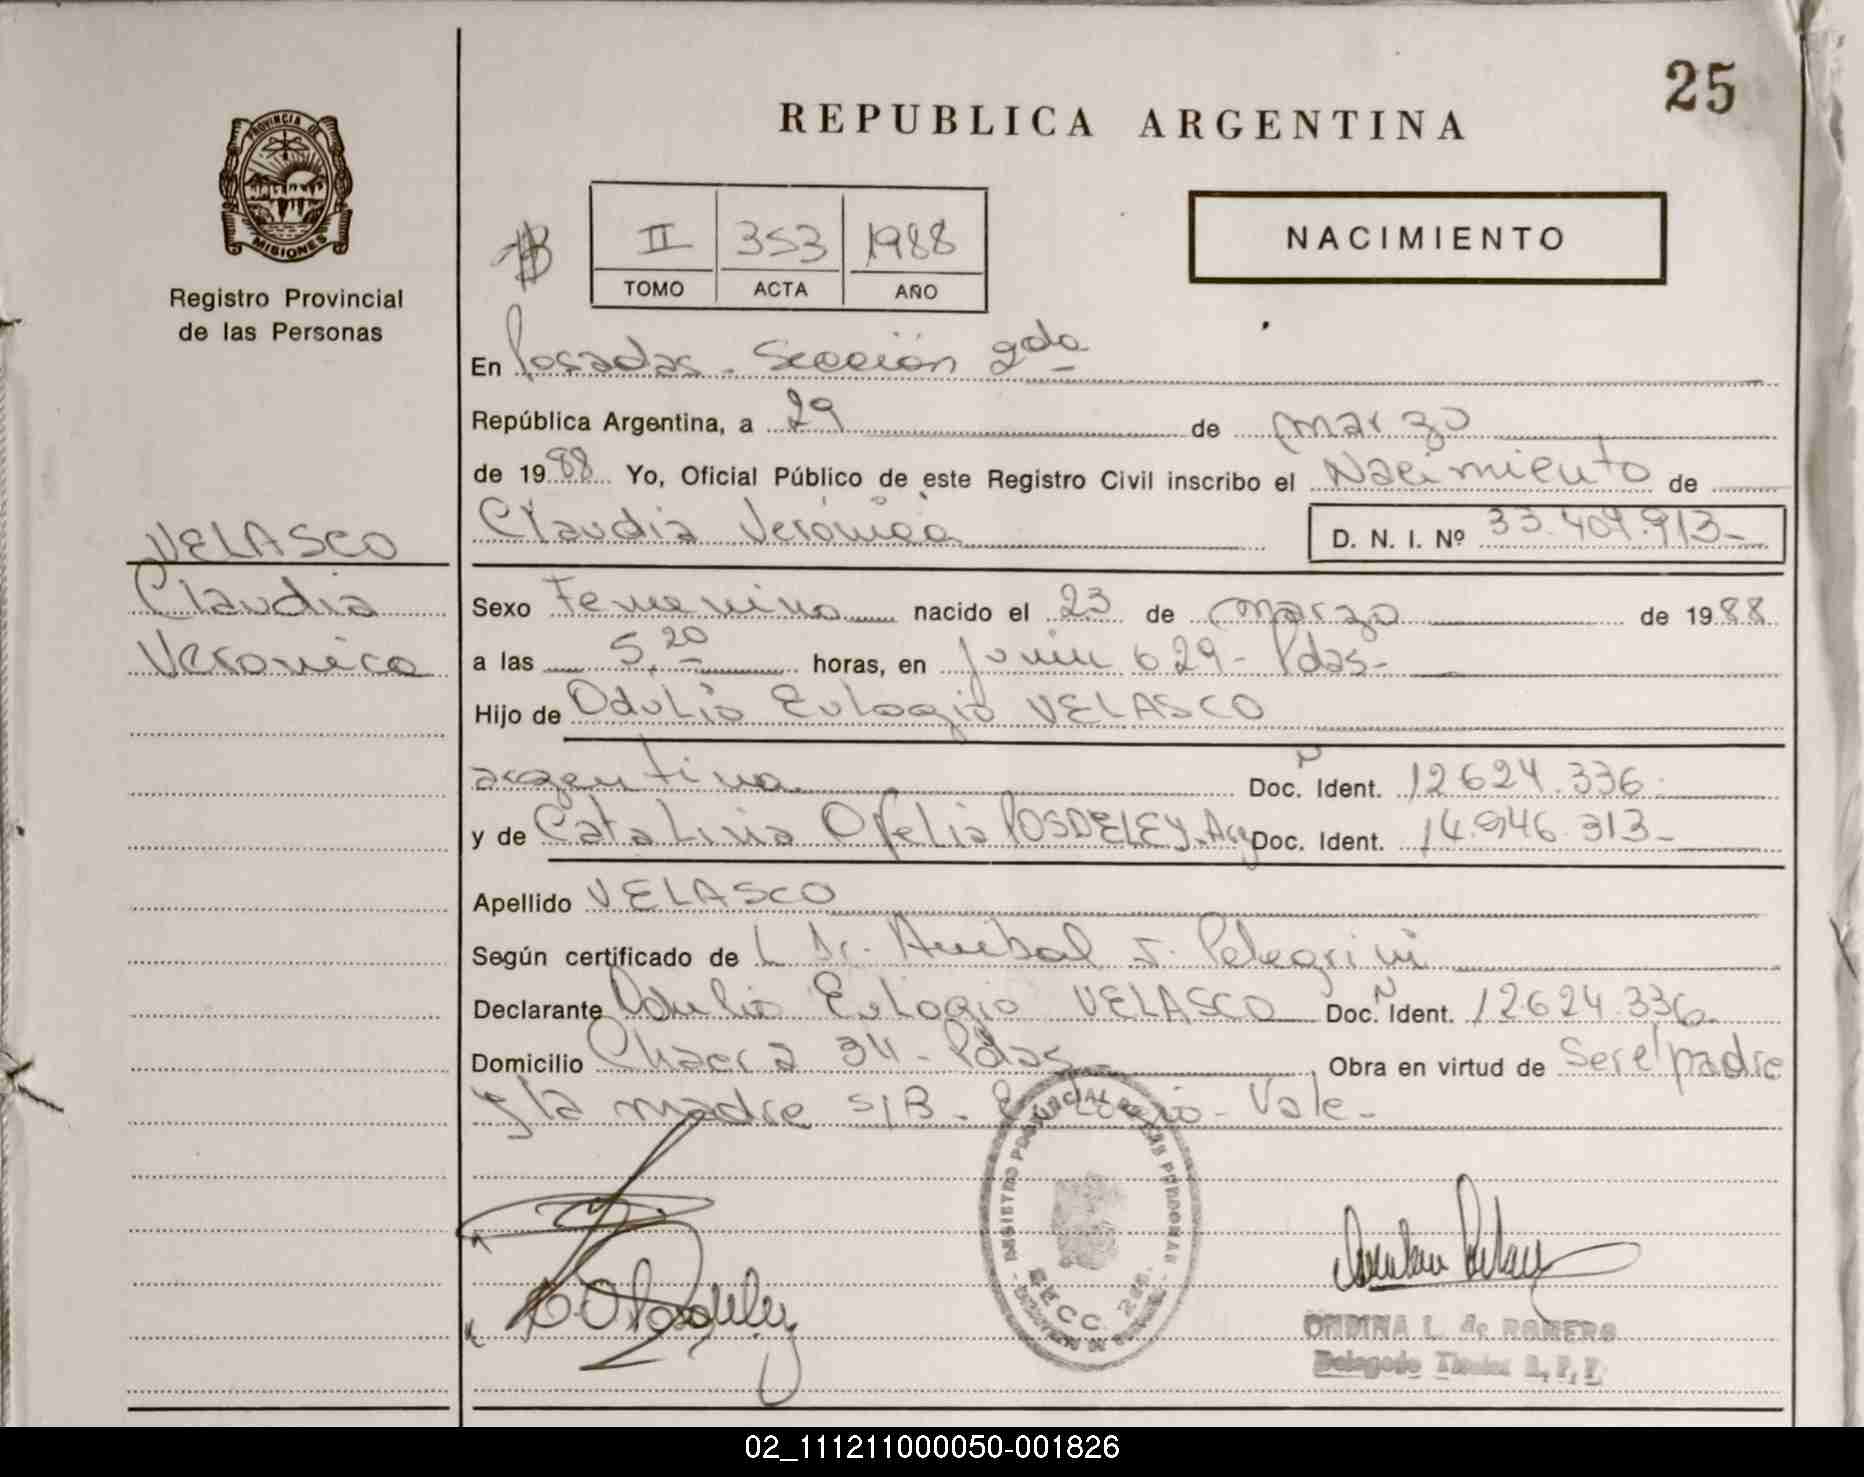 25
REPUBLICA ARGENTINA
PROVINCIA DE
MISIONES
Registro Provincial
de las Personas
II 353 1988
TOMO ACTA AÑO
NACIMIENTO
En Posadas - Sección 2da -
República Argentina, a 29 de marzo
de 1988 Yo, Oficial Público de este Registro Civil inscribo el Nacimiento de
Claudia Verónica D. N. I. Nº 33.409.913-
VELASCO
Claudia
Veronica
Sexo Femenino nacido el 23 de marzo de 1988
a las 5,20 horas, en Junin 629 - Pdas-
Hijo de Odulio Eulogio VELASCO
argentino Doc. Ident. 12624.336
y de Catalina Ofelia POSDELEY. Arg Doc. Ident. 14.946.313-
Apellido VELASCO
Según certificado de Dr. Anibal J. Pelegrini
Declarante Odulio Eulogio VELASCO Doc. Ident. 12624.336
Domicilio Chacra 34 - Pdas Obra en virtud de Ser el padre
y la madre S/B - Eulogio - Vale -
ONDINA L. de ROMERO
Delegado Titular R. P. P.
02_111211000050-001826